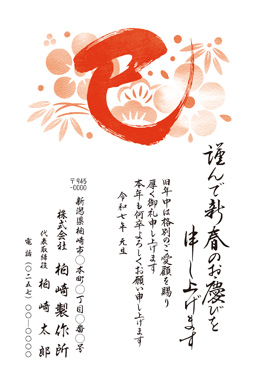 巳
謹んで新春のお慶びを
申し上げます
旧年中は格別のご愛顧を賜り
厚く御礼申し上げます
本年も何卒よろしくお願い申し上げます
令和七年 元旦
〒945-0000
新潟県柏崎市〇木町〇丁目〇番〇号
株式会社 柏崎製作所
代表取締役 柏崎太郎
電話(〇二五七)〇〇-〇〇〇〇